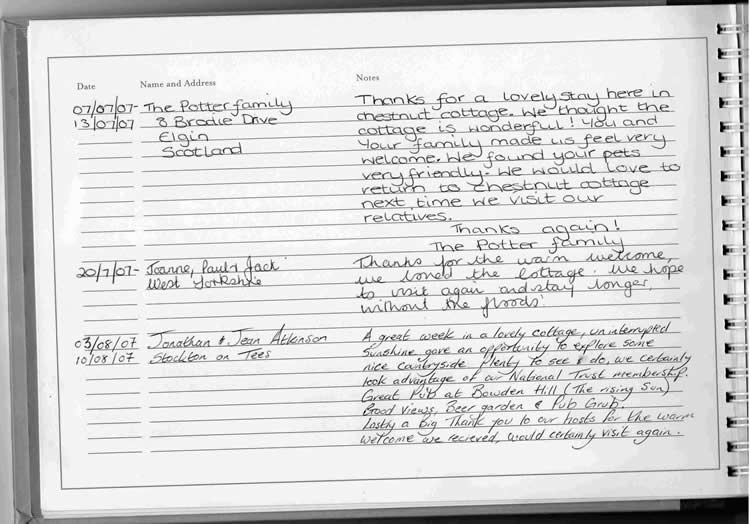 Date Name and Address Notes
07/07/07- The Potter family Thanks for a lovely stay here in
13/07/07 8 Brodie Drive chestnut cottage. We thought the
Elgin cottage is wonderful! You and
Scotland Your family made us feel very
welcome. We found your pets
very friendly. We would love to
return to chestnut cottage
next time we visit our
relatives.
Thanks again!
The Potter family
20/7/07- Joanne, Paul & Jack Thanks for the warm welcome,
West Yorkshire we loved the cottage. We hope
to visit again and stay longer,
without the floods!
03/08/07 Jonathan & Jean Atkinson A great week in a lovely cottage, uninterrupted
10/08/07 Stockton on Tees Sunshine gave an opportunity to explore some
nice countryside plenty to see & do, we certainly
took advantage of our National Trust membership.
Great Pub at Bowden Hill (The rising Sun)
Good Views, Beer garden & Pub Grub.
Lastly a Big Thank you to our hosts for the warm
welcome we recieved, would certainly visit again.